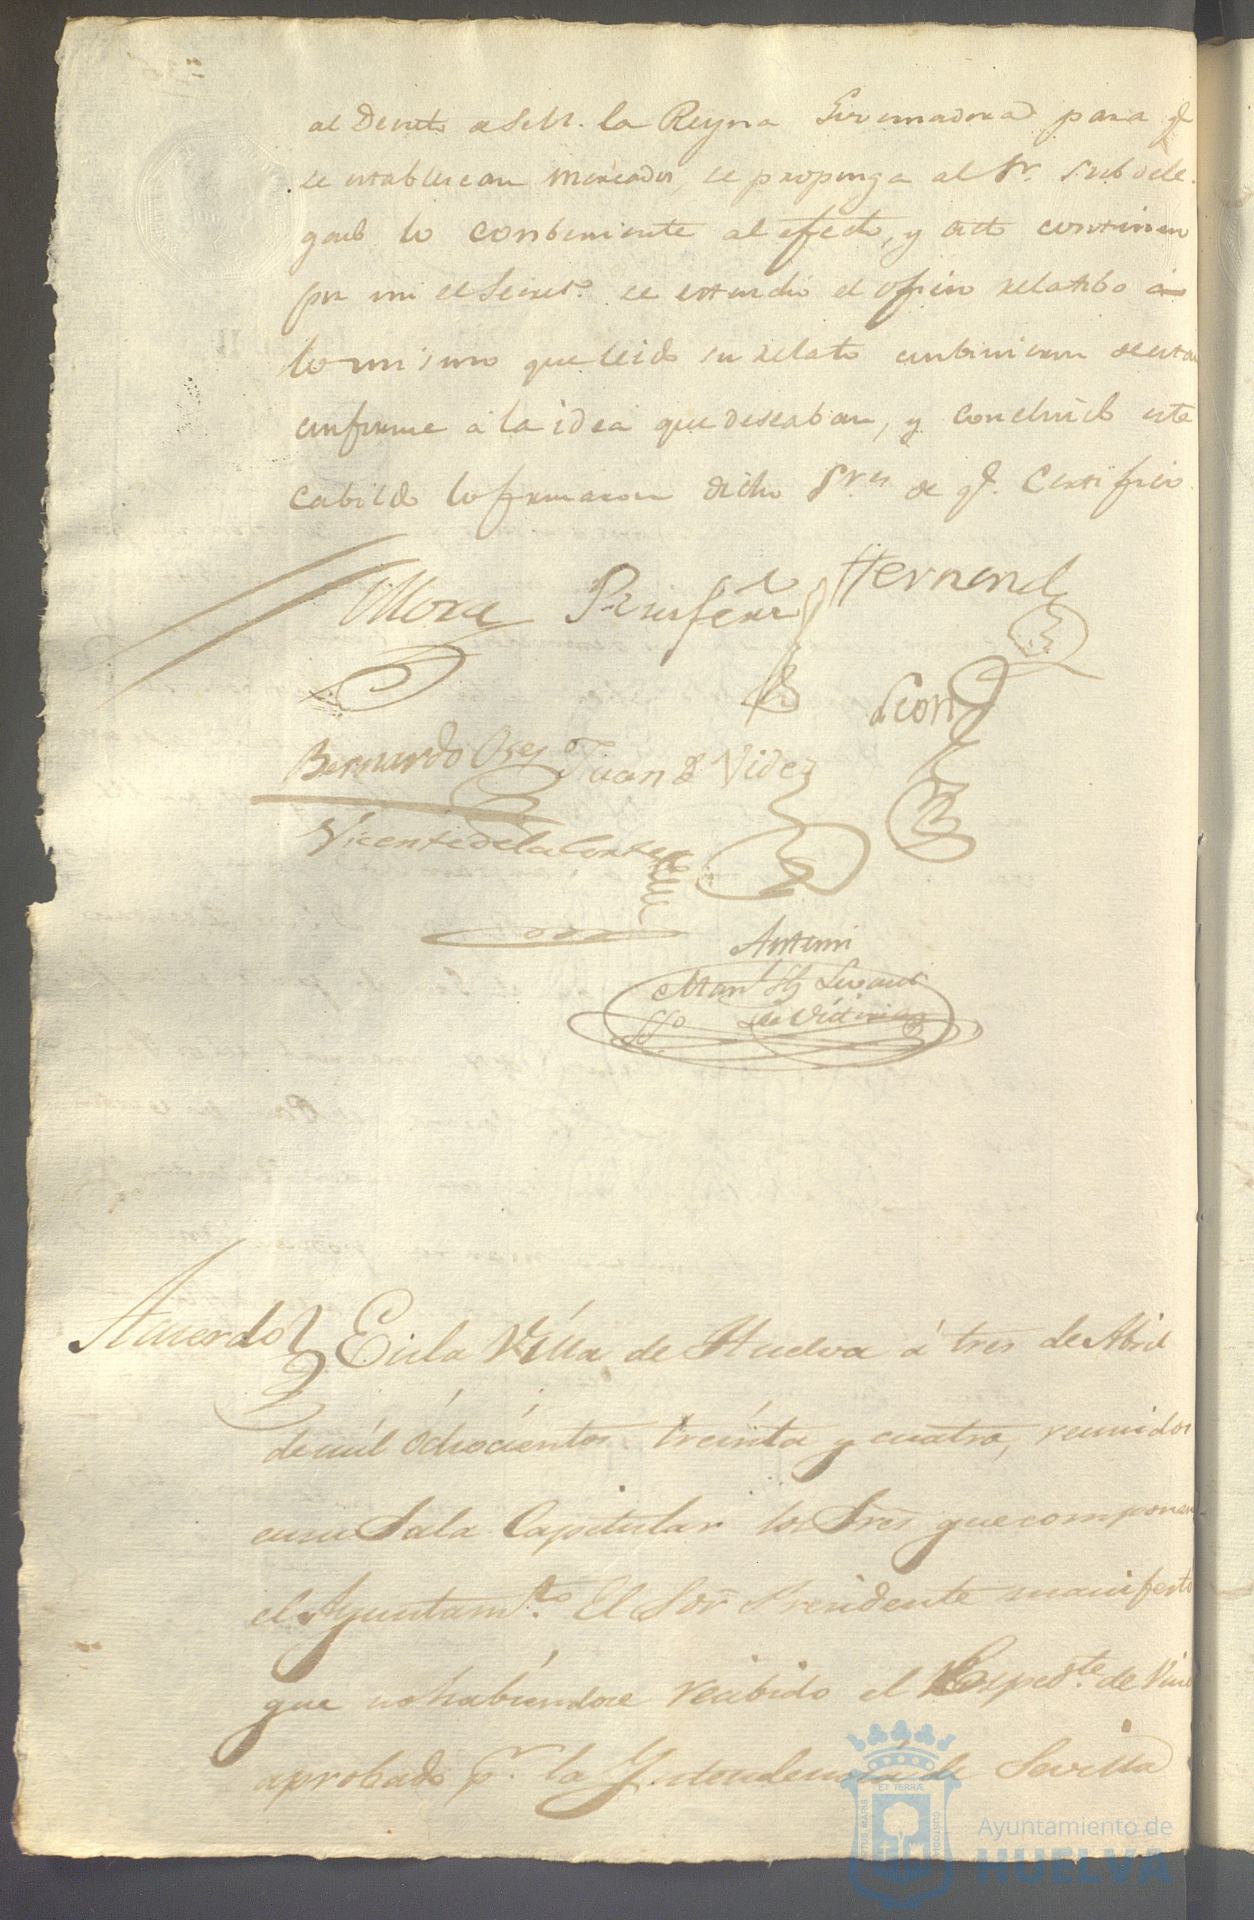 al Decreto de S. M. la Reyna Governadora para q.e
se establescan mercados, se proponga al Sr. Subdele-
gado lo conbeniente al efecto, y acto continuo
por mi el Secret.o se estendió el oficio relatibo á
lo mismo que leido su relato conbinieron de estar
conforme á la idea que deseaban, y concluido este
Cabildo lo firmaron dicho Sres. de q.e Certifico.
Mora
Hernand
Leon
Bernardo
Juan Videz
Vicente de la Corte
Antemi
Man.l
Acuerdo
En la Villa de Huelva á tres de Abril
de mil óchocientos treinta y cuatro, reunidos
en su Sala Capitular los Sres que componen
el Ayuntam.to El Sor Presidente manifesto
que no habiendose recibido el Exped.te de Vino
aprobado p.r la Yntendencia de Sevilla
Ayuntamiento de
HUELVA